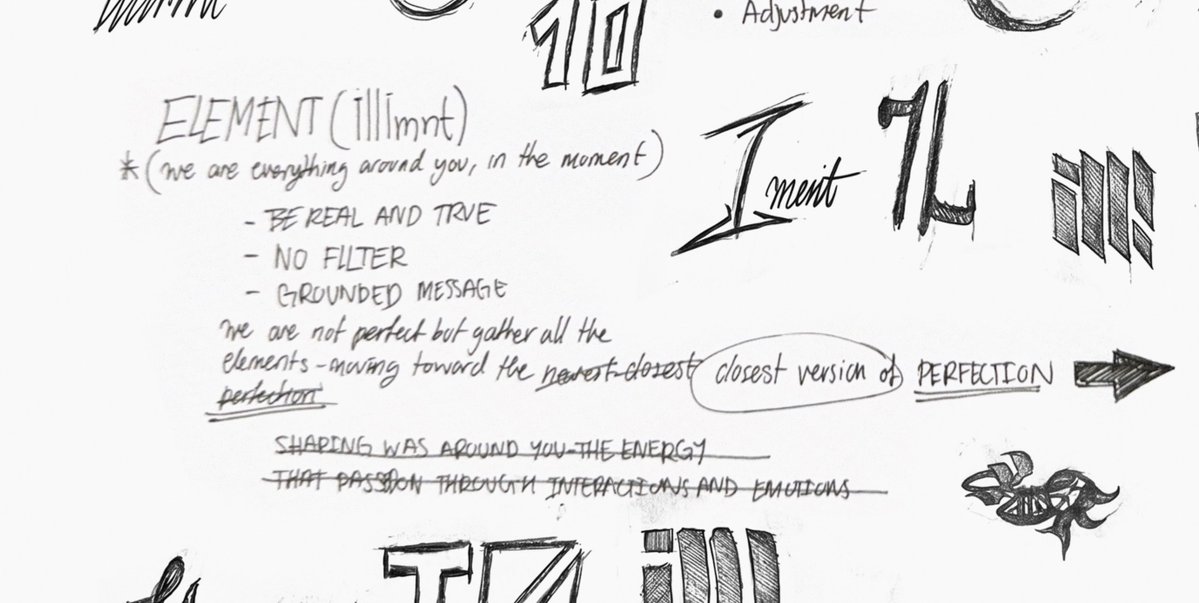 • Adjustment
ELEMENT (illimnt)
* (we are everything around you, in the moment)
- BE REAL AND TRUE
- NO FILTER
- GROUNDED MESSAGE
We are not perfect but gather all the
elements - moving toward the nearest closest closest version of PERFECTION
perfection
SHAPING WAS AROUND YOU - THE ENERGY
THAT PASSION THROUGH INTERACTIONS AND EMOTIONS
I ment
IL
ill
ill